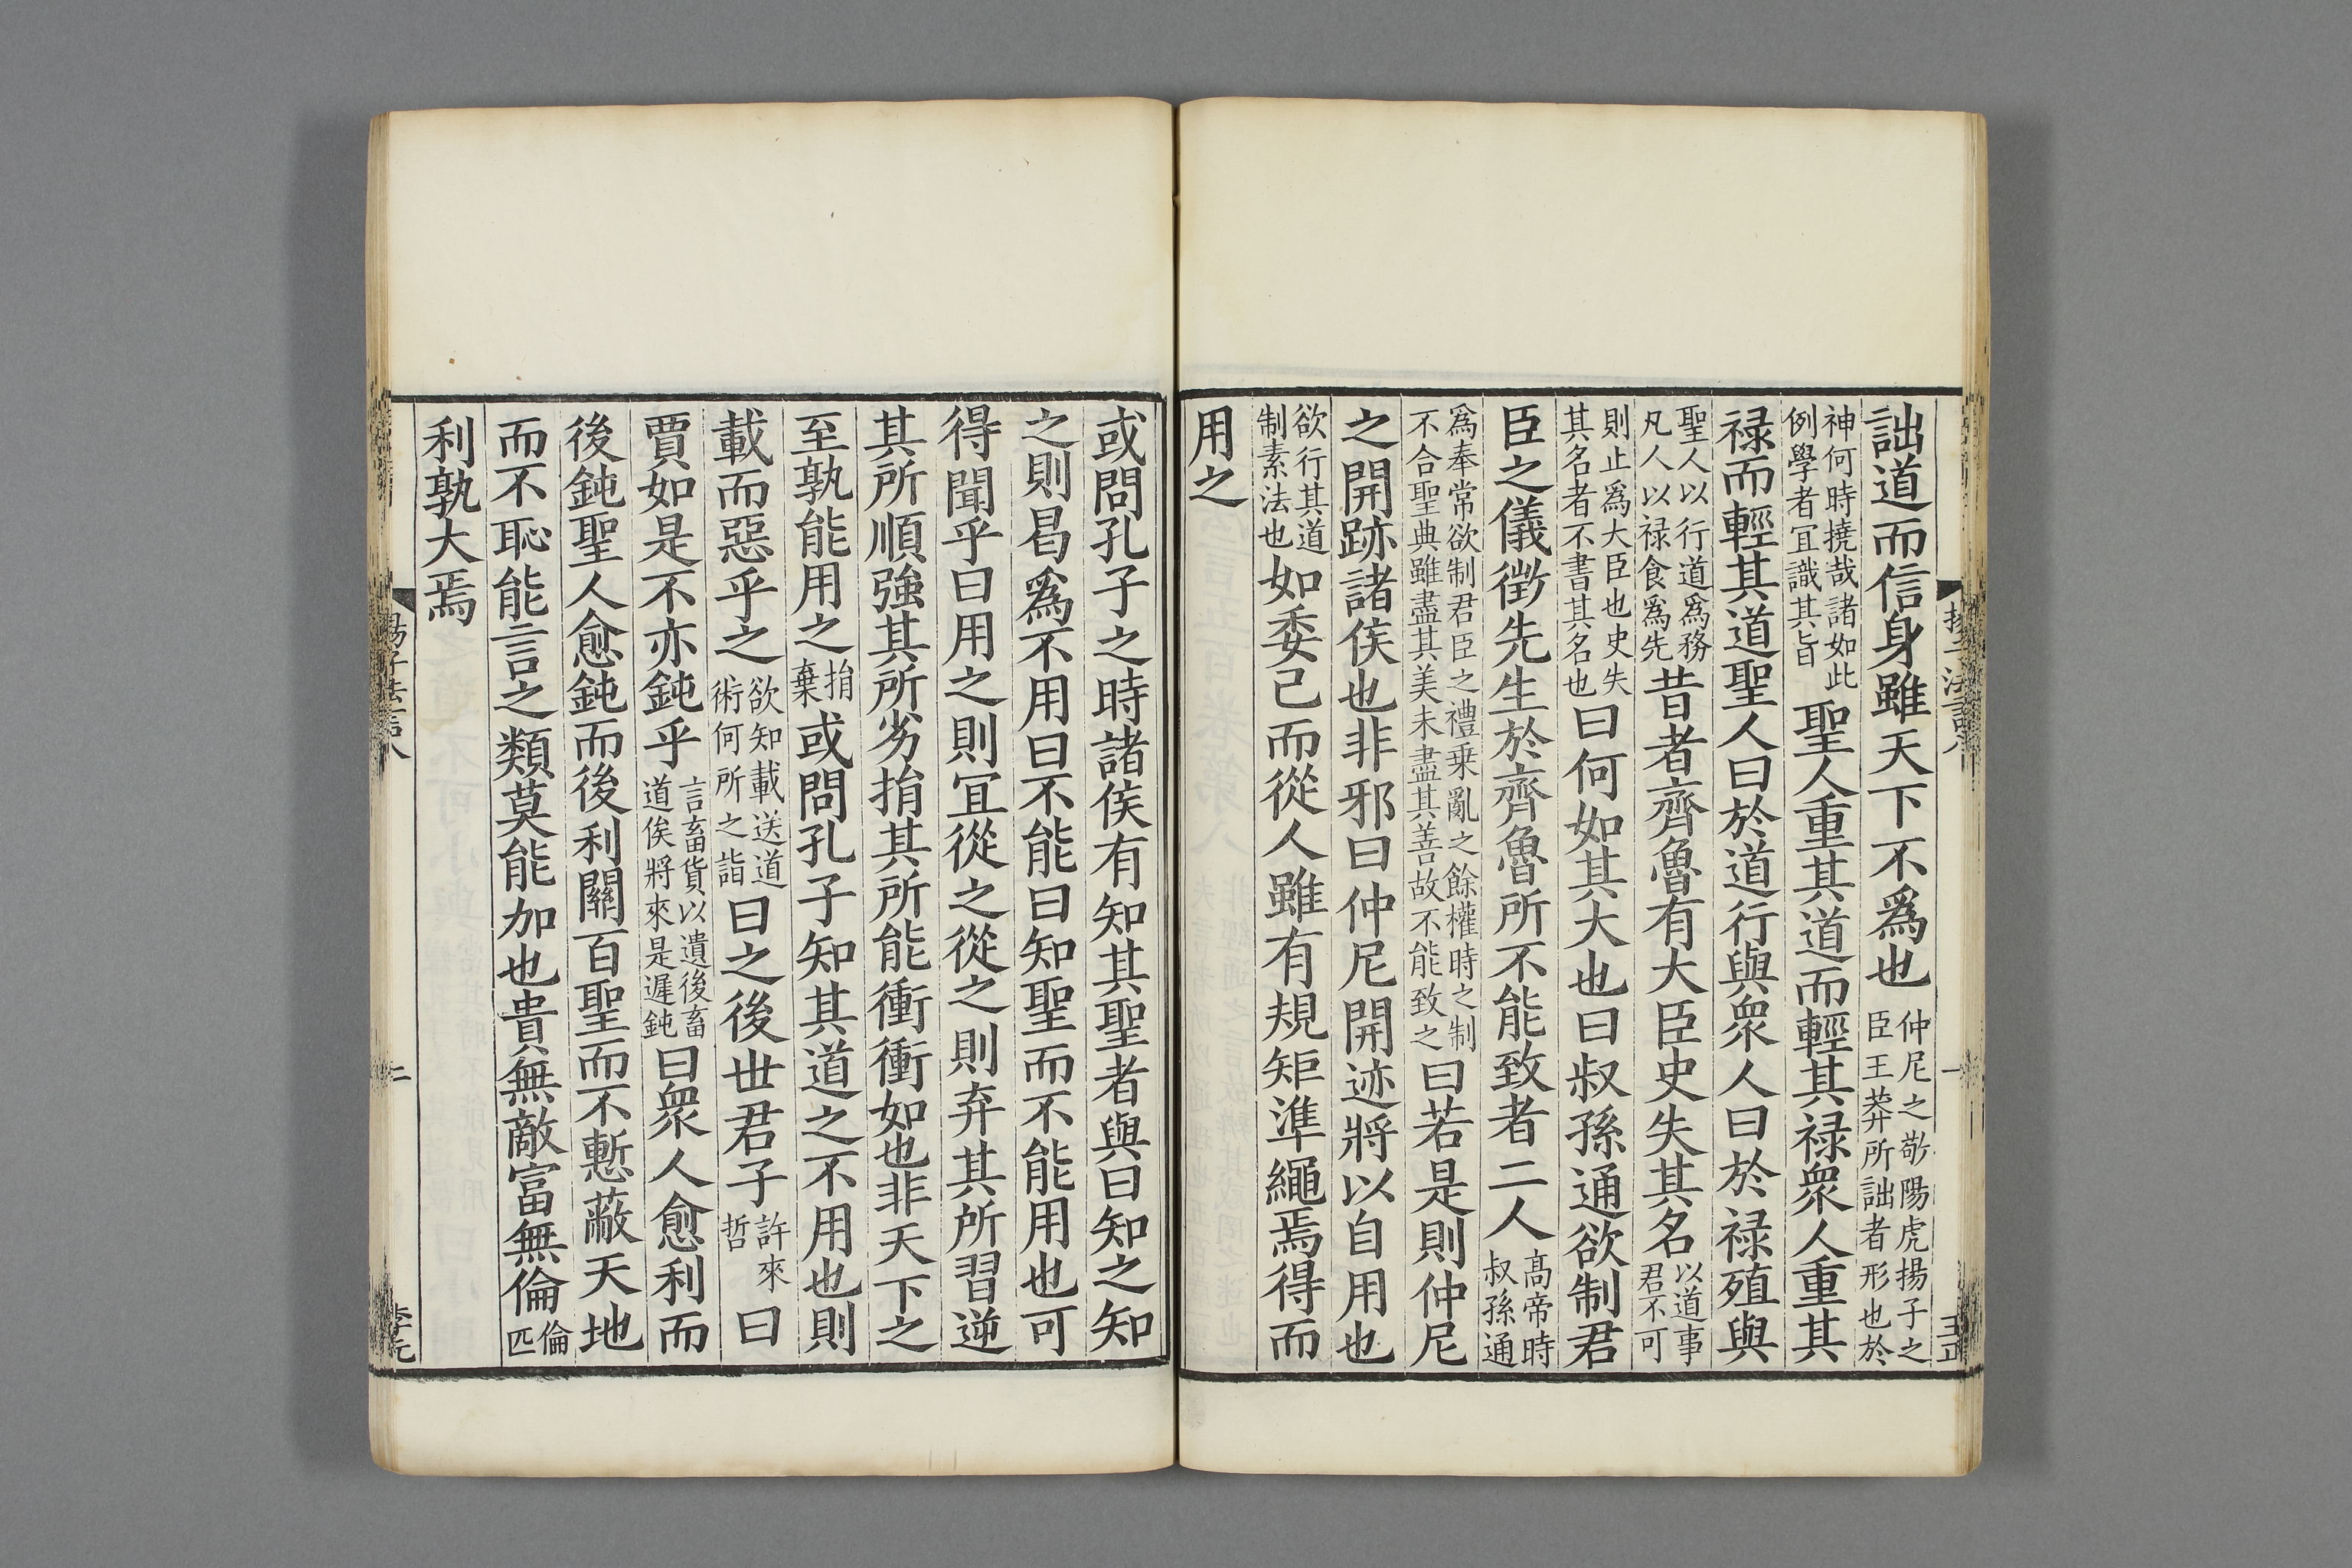 詘道而信身雖天下不爲也仲尼之敬陽虎揚子之臣王莽所詘者形也於
神何時撓哉諸如此例學者宜識其旨聖人重其道而輕其禄衆人重其
禄而輕其道聖人曰於道行與衆人曰於禄殖與
聖人以行道爲務凡人以禄食爲先昔者齊魯有大臣史失其名以道事君不可
則止爲大臣也史失其名者不書其名也曰何如其大也曰叔孫通欲制君
臣之儀徵先生於齊魯所不能致者二人髙帝時叔孫通
爲奉常欲制君臣之禮乗亂之餘權時之制不合聖典雖盡其美未盡其善故不能致之曰若是則仲尼
之開跡諸侯也非邪曰仲尼開迹將以自用也
欲行其道制素法也如委己而從人雖有規矩準繩焉得而
用之
或問孔子之時諸侯有知其聖者與曰知之知
之則曷爲不用曰不能曰知聖而不能用也可
得聞乎曰用之則宜從之從之則弃其所習逆
其所順強其所劣捐其所能衝衝如也非天下之
至孰能用之捐棄或問孔子知其道之不用也則
載而惡乎之欲知載送道術何所之詣曰之後世君子許來哲曰
賈如是不亦鈍乎言畜貨以遺後畜道俟將來是遲鈍曰衆人愈利而
後鈍聖人愈鈍而後利關百聖而不慙蔽天地
而不恥能言之類莫能加也貴無敵富無倫倫匹
利孰大焉